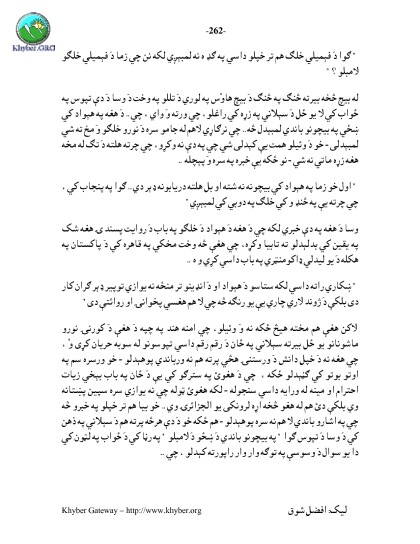 -262-
Khyber.ORG
" ګوا دَ فيميلي خلګ هم تر خپلو داسي په ګډه نه لمبېږي لکه نن چي زما دَ فيميلي خلګو
لامبلو ؟ "
له بيچ څخه بيرته څنګ په څنګ دَ بيچ هاؤس په لوري دَ تللو په وخت دَ وسا دَ دې تپوس په
ځواب کي لا يو ځل دَ سېلاني په زړه کي راغلو ، چي ورته وَ وای ، چي .. دَ هغه په هېواد کي
ښځي په بيچونو باندي لمبېدل څه .. چي نرګاري لا هم له جامو سره دَ نورو خلګو دَ مخ ته شي
لمبېدلی - خو دَ وئيلو همت يې کېدلی شي چي په دې نه وکړو ، چي چرته هلته دَ تګ له مخه
هغه زړه ماتي نه شي - نو ځکه يې خبره په سره وَ پيچله ..
" اول خو زما په هېواد کي بيچونه نه شته او بل هلته دريابونه ډېر دي .. ګوا په پنجاب کي ،
چي چرته يې په څنډو کي خلګ په دوبي کي لمبېږي "
وسا دَ هغه په دې خبري لکه چي دَ هغه دَ هېواد دَ خلګو په باب دَ روايت پسندۍ هغه شک
په يقين کي بدلېدلو ته تابيا وکړه ، چي هغې څه وخت مخکي په قاهره کي دَ پاکستان په
هکله دَ يو ليدلي ډاکومنټري په باب داسي کړی وه ..
" ښکاري راته داسي لکه ستاسو دَ هېواد او دَ انډيينو تر منځه نه يوازي توپير ډېر ګران کار
دی بلکې دَ ژوند لاري چاري يې يو رنګه څه چي لا هم هغسي پخوانی او روائتي دی "
لاکن هغې هم مخته هيڅ ځکه نه وَ وئيلو ، چي امنه هند په چپه دَ هغې دَ کورنۍ نورو
ماشومانو يو ځل بيرته سېلاني په ځان دَ رقم رقم داسي تپوسونو له سوبه حريان کړی وُ ،
چي هغه نه دَ خپل دانش دَ ورستنۍ هڅي پرته هم نه ورباندي پوهېدلو - خو ورسره سم په
اوتو بوتو کي ګډېدلو ځکه ، چي دَ هغوئ په سترګو کي يې دَ ځان په باب بيخي زيات
احترام او مينه له ورايه داسي سنجوله - لکه هغوئ ټوله چي نه يوازي سره سپين پښتانه
وي بلکې دئ هم له هغو څخه اړه لرونکی يو الجزائری وي .. خو بيا هم تر خپلو په خبرو څه
چي په اشارو باندي لا هم نه سره پوهېدلو - هم ځکه خو دَ دې هرڅه پرته هم دَ سېلاني په ذهن
کي دَ وسا دَ تپوس ګوا " په بيچونو باندي دَ ښځو دَ لامبلو " په رڼا کي دَ ځواب په لټون کي
دا يو سوال دَ وسوسې په توګه وار وار راپورته کېدلو ، چي ..
Khyber Gateway – http://www.khyber.org
ليک: افضل شوق